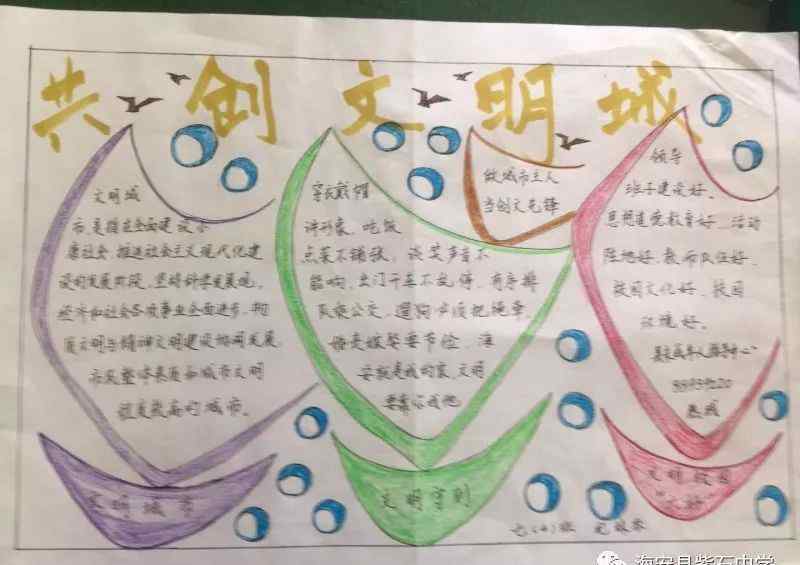 共创文明城
文明城
市,是指在全面建设小
康社会,推进社会主义现代化建
设的发展阶段,坚持科学发展观,
经济和社会各项事业全面进步,物
质文明与精神文明建设协调发展,
市民整体素质和城市文明
程度较高的城市。
文明城市
穿衣戴帽
讲形象,吃饭
点菜不铺张,谈笑声音不
能响,出门千车不乱停,有序排
队乘公交,遛狗必须把绳牵,
婚丧嫁娶要节俭,海
安就是我的家,文明
要靠你我他
文明守则
做城市主人
当创文先锋
领导
班子建设好。
思想道德教育好、活动
阵地好、教师队伍好、
校园文化好、校园
环境好。
文明校园
七(4)班
海安县紫石中学